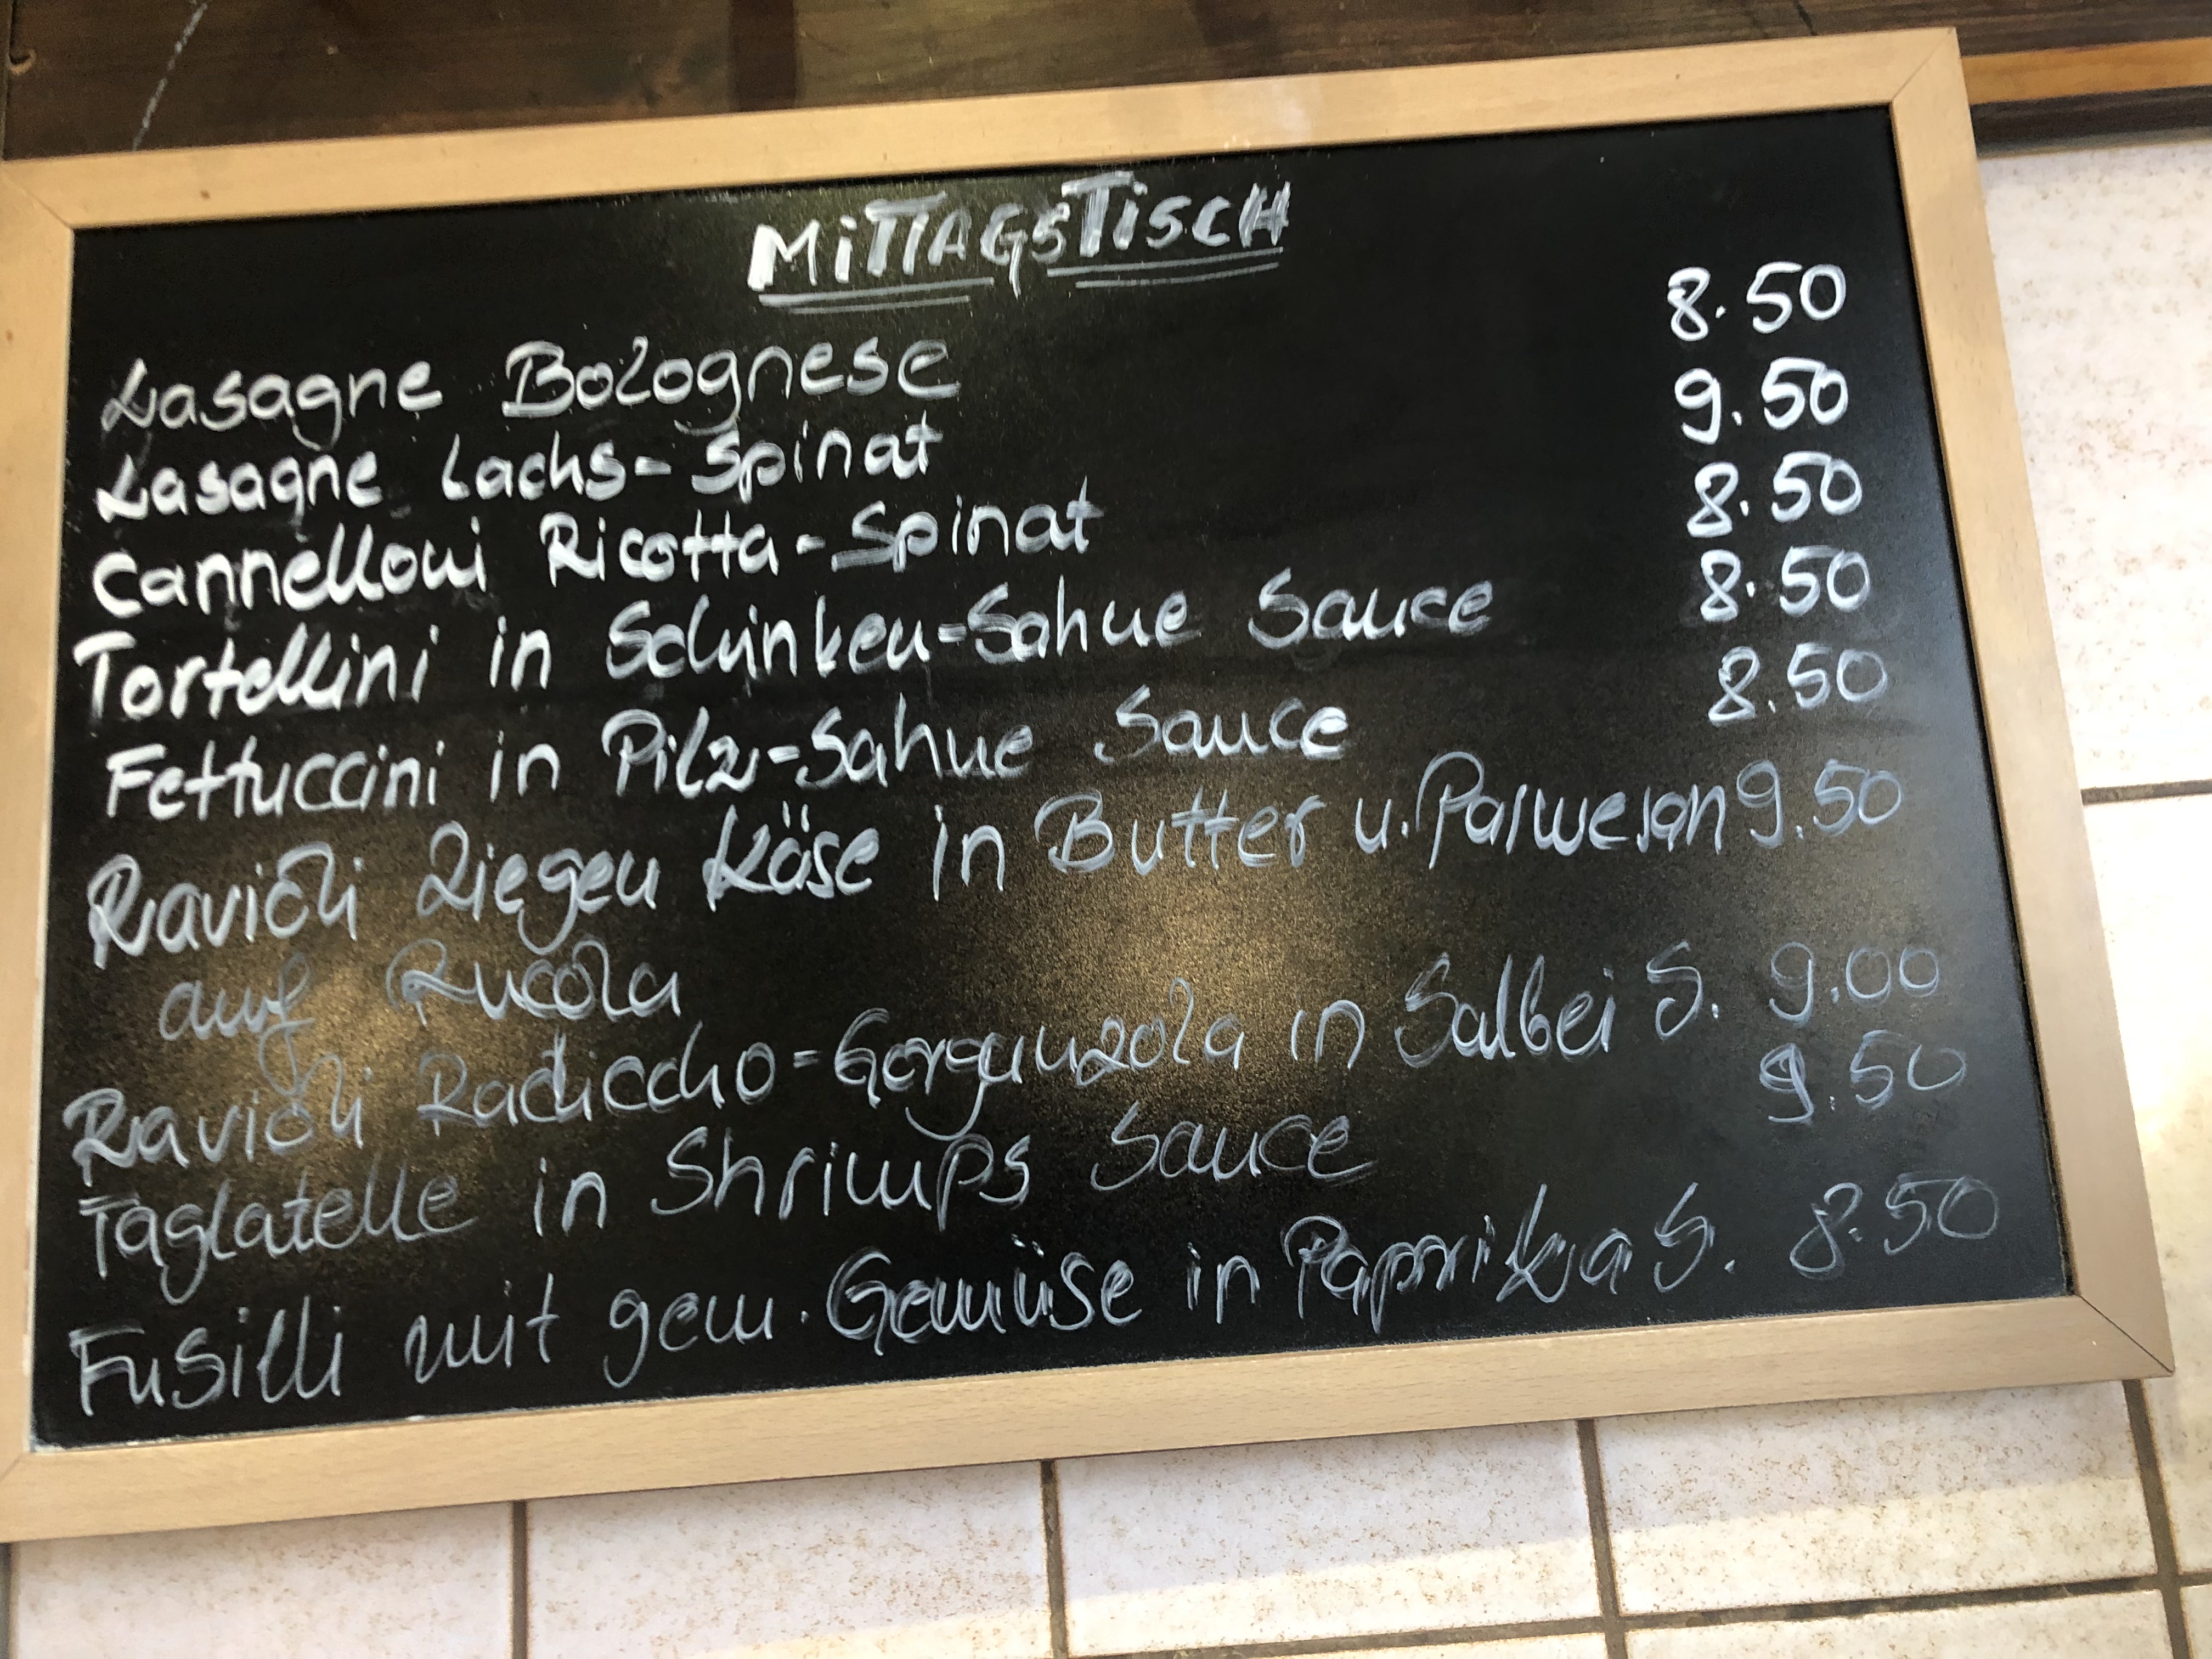 MiTTAGSTiSCH
Lasagne Bolognese 8.50
Lasagne Lachs-Spinat 9.50
Cannelloni Ricotta-Spinat 8.50
Tortellini in Schinken-Sahne Sauce 8.50
Fettuccini in Pilz-Sahne Sauce 8.50
Ravioli Ziegen Käse in Butter u. Parmesan 9.50
auf Rucola
Ravioli Radiccho-Gorgunzola in Salbei S. 9.00
Taglatelle in Shrimps Sauce 9.50
Fusilli mit gem. Gemüse in Paprika S. 8.50